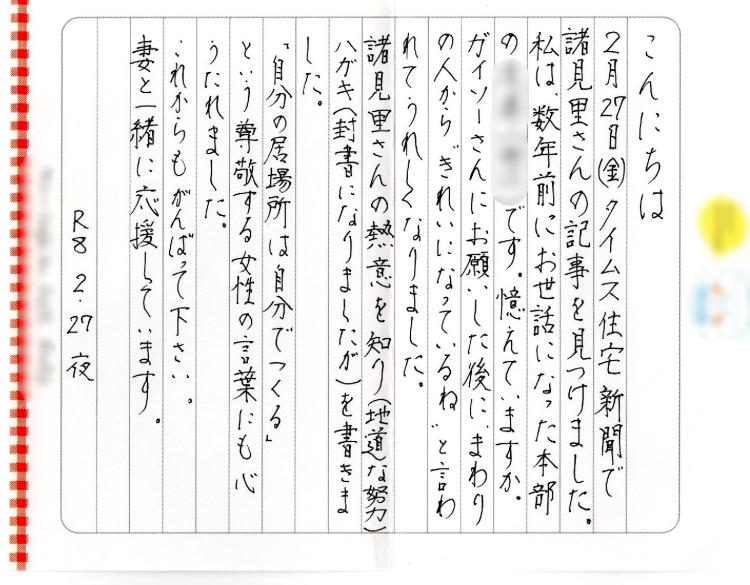 こんにちは
2月27日(金)タイムス住宅新聞で
諸見里さんの記事を見つけました。
私は、数年前にお世話になった本部
の
です。憶えていますか。
ガイソーさんにお願いした後に、まわり
の人から〝きれいになっているね〟と言わ
れてうれしくなりました。
諸見里さんの熱意を知り(地道な努力)
ハガキ(封書になりましたが)を書きま
した。
「自分の居場所は自分でつくる」
という尊敬する女性の言葉にも心
うたれました。
これからもがんばって下さい。
妻と一緒に応援しています。
R8 2.27 夜